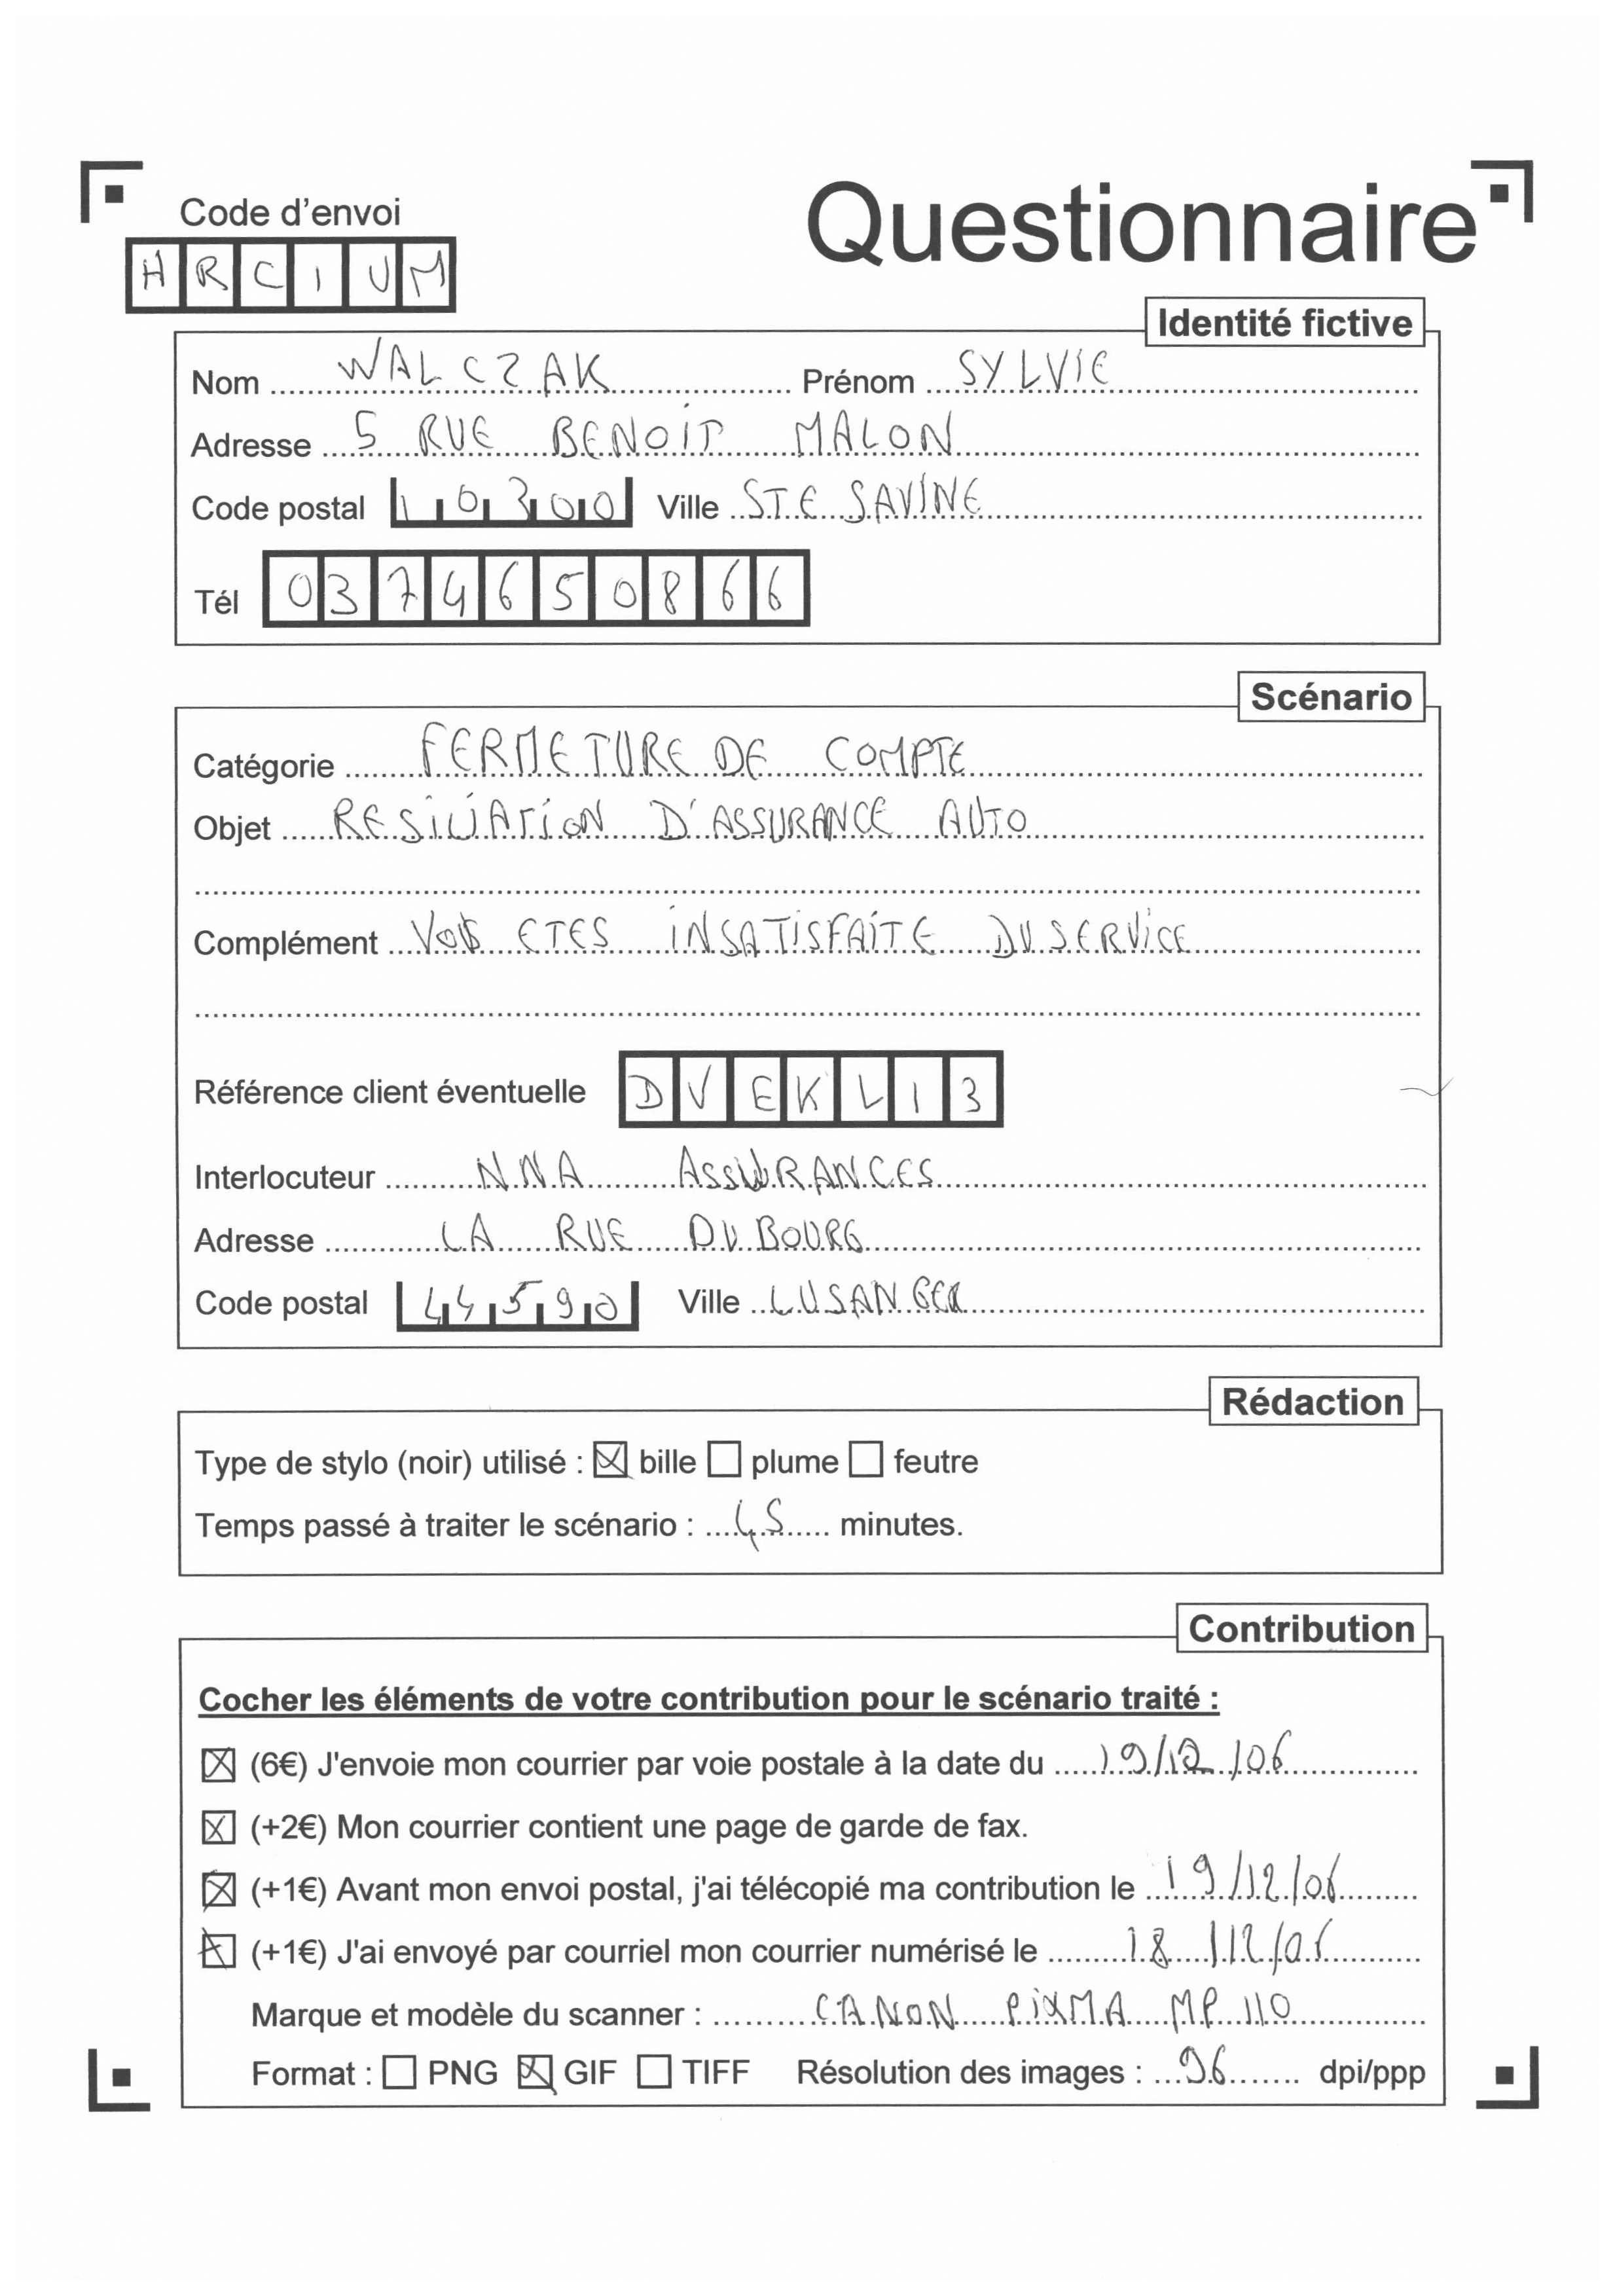 Code d'envoi
Questionnaire
HRCIUM
Identité fictive
Nom WALCZAK Prénom SYLVIE
Adresse 5 RUE BENOIT MALON
Code postal 10300 Ville STE SAVINE
Tél 0374650866
Scénario
Catégorie FERMETURE DE COMPTE
Objet RESILIATION D'ASSURANCE AUTO
Complément VOUS ETES INSATISFAITE DU SERVICE
Référence client éventuelle DVEKL13
Interlocuteur NNA ASSURANCES
Adresse LA RUE DU BOURG
Code postal 44590 Ville LUSANGER
Rédaction
Type de stylo (noir) utilisé : bille plume feutre
Temps passé à traiter le scénario : 45 minutes.
Contribution
Cocher les éléments de votre contribution pour le scénario traité :
(6€) J'envoie mon courrier par voie postale à la date du 19/12/06
(+2€) Mon courrier contient une page de garde de fax.
(+1€) Avant mon envoi postal, j'ai télécopié ma contribution le 19/12/06
(+1€) J'ai envoyé par courriel mon courrier numérisé le 18/12/06
Marque et modèle du scanner : CANON PIXMA MP 110
Format : PNG GIF TIFF Résolution des images : 96 dpi/ppp